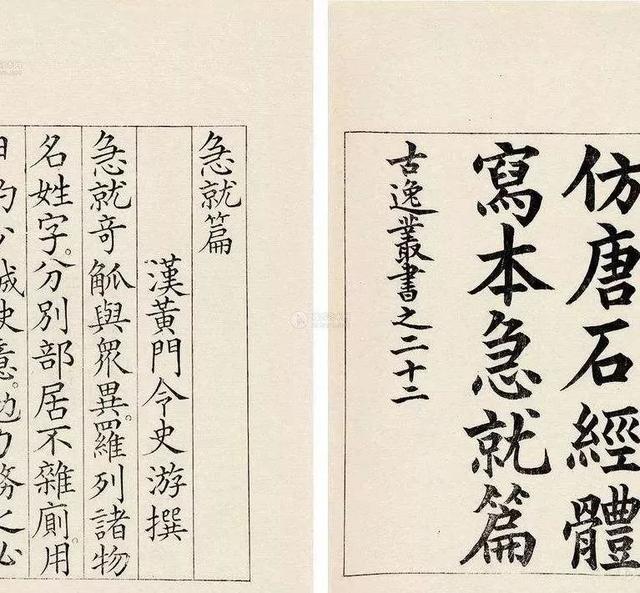 仿唐石經體
寫本急就篇
古逸叢書之二十二
急就篇
漢黃門令史游撰
急就奇觚與眾異。羅列諸物
名姓字。分別部居不雜廁。用
日約少誠快意。勉力務之必